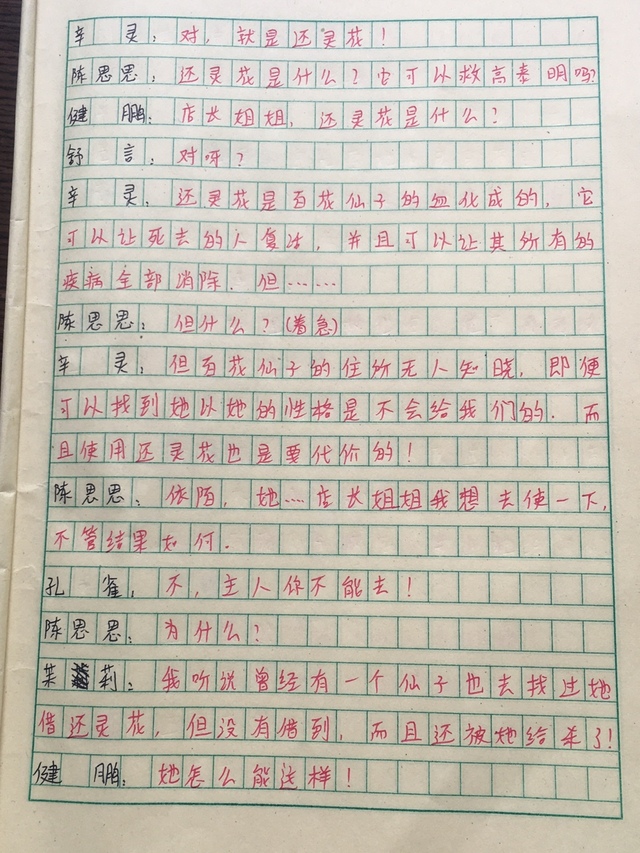 辛灵：对，就是还灵花！
陈思思：还灵花是什么？它可以救高泰明吗？
健鹏：店长姐姐，还灵花是什么？
舒言：对呀？
辛灵：还灵花是百花仙子的血化成的，它
可以让死去的人复活，并且可以让其所有的
疾病全部消除．但……
陈思思：但什么？(着急)
辛灵：但百花仙子的住所无人知晓，即便
可以找到她以她的性格是不会给我们的．而
且使用还灵花也是要代价的！
陈思思：依陌，她……店长姐姐我想去使一下，
不管结果如何．
孔雀，不，主人你不能去！
陈思思：为什么？
茉莉：我听说曾经有一个仙子也去找过她
借还灵花，但没有借到，而且还被她给杀了！
健鹏：她怎么能这样！